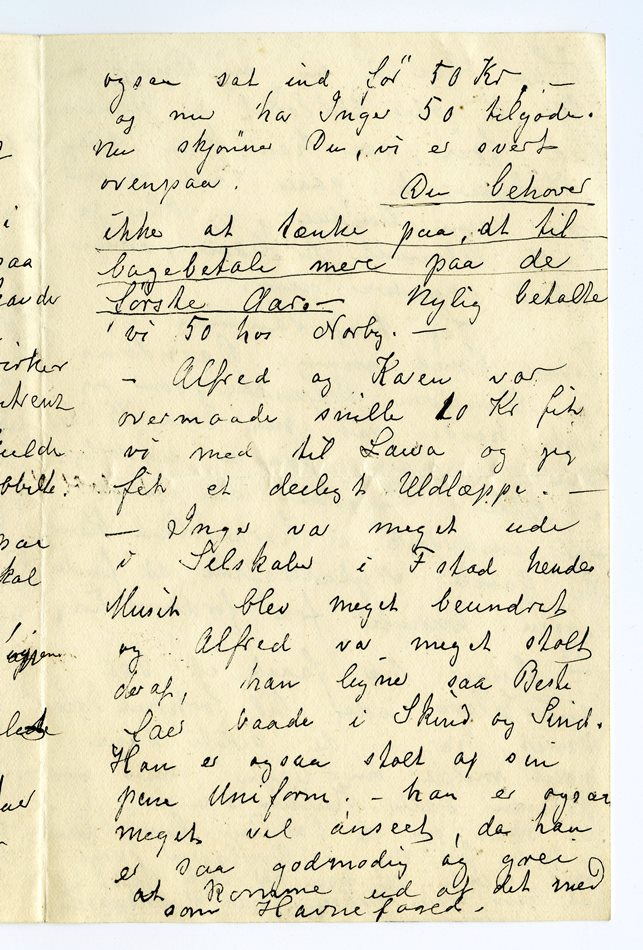 ogsaa sat ind før 50 Kr. —
og nu har Inger 50 tilgode.
Nu skjønner Du, vi er svert
ovenpaa. Du behøver
ikke at tænke paa, at til
bagebetale mere paa de
første Aar. — Nylig betalte
vi 50 hos Norby. —
— Alfred og Karen var
overmaade snille 10 Kr fik
vi med til Lawa og jeg
fik et deiligt Uldtæppe. —
— Inger var meget ude
i Selskaber i Fstad hendes
Musik blev meget beundret
og Alfred va meget stolt
deraf, han ligner saa Beste
faer baade i Skind og Sind.
Han er ogsaa stolt af sin
pene Uniform. — han er ogsaa
meget vel anseet, da han
er saa godmodig og grei
at komme ud af det med
som Havnefoged. —
paa
irker
ulde
skal